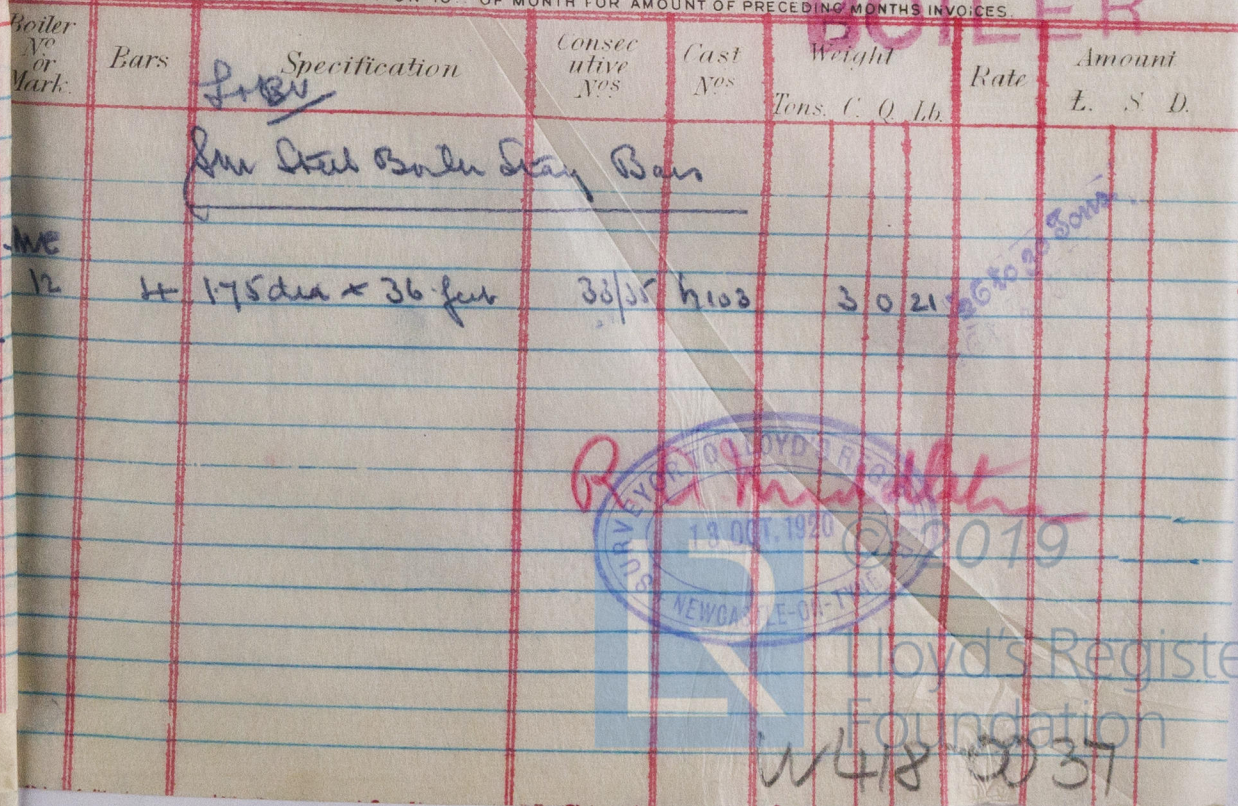 OF MONTH FOR AMOUNT OF PRECEDING MONTHS INVOICES.
BOILER
Boiler Nº or Mark. Bars Specification Consecutive Nos Cast Nos Weight Tons. C. Q. Lb. Rate Amount £. S. D.
L+BV
Sm Steel Boiler Stay Bars
26 to 30 Tons
12 4 1·75 dia × 36 feet 33/35 3 0 21
SURVEYOR TO LLOYD'S REGISTER
13 OCT. 1920
NEWCASTLE-ON-TYNE
R A
© 2019
Lloyd's Registe
Foundation
W418-0037